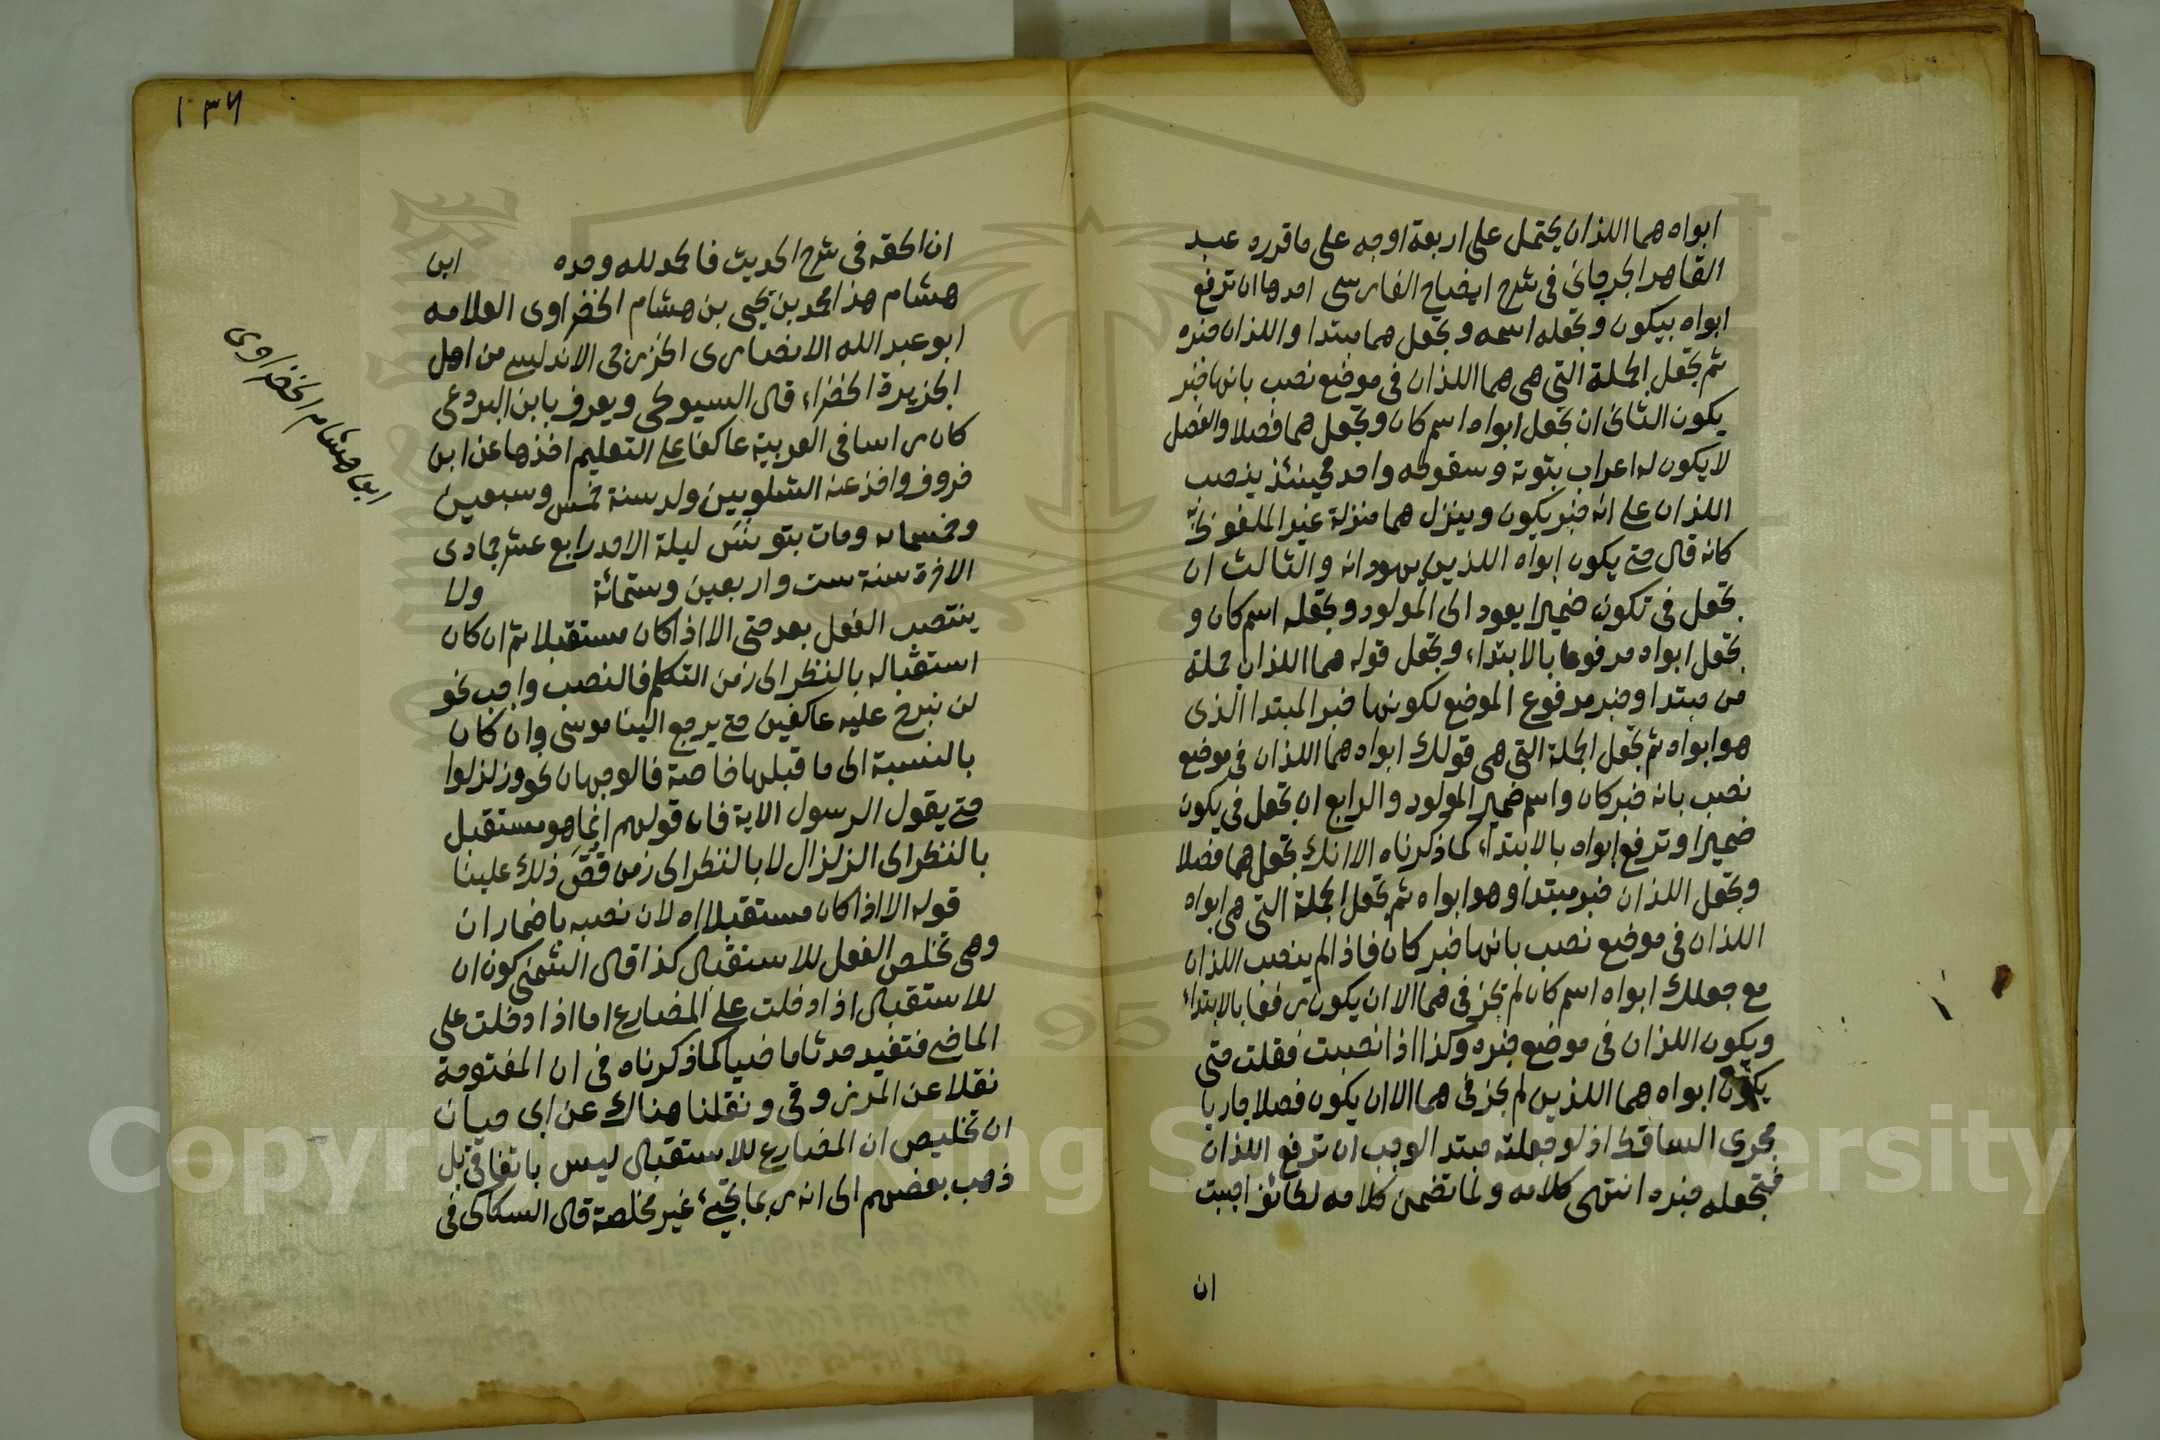 ابواه هما اللذان يحتمل على اربعة اوجه على ما قرره عبد
القاهر الجرجاني في شرح ايضاح الفارسي احدها ان ترفع
ابواه بيكون وتجعله اسمه وتجعل هما مبتدا واللذان خبره
ثم تجعل الجملة التي هي هما اللذان في موضع نصب بانها خبر
يكون الثاني ان تجعل ابواه اسم كان وتجعل هما فصلا والفصل
لا يكون له اعراب بثبوته وسقوطه واحد فحينئذ ينصب
اللذان على انه خبر يكون وينزل هما منزلة غير الملفوظ به
كانه قال حتى يكون ابواه اللذين يهودانه والثالث ان
تجعل في تكون ضميرا يعود الى المولود وتجعله اسم كان و
تجعل ابواه مرفوعا بالابتداء وتجعل قوله هما اللذان جملة
من مبتدا وخبر مرفوع الموضع لكونها خبر المبتدا الذى
هو ابواه ثم تجعل الجملة التي هى قولك ابواه هما اللذان في موضع
نصب بانه خبر كان واسم ضمير المولود والرابع ان تجعل في يكون
ضميرا وترفع ابواه بالابتداء كما ذكرناه الا انك تجعل هما فصلا
وتجعل اللذان خبر مبتدا وهو ابواه ثم تجعل الجملة التي هي ابواه
اللذان في موضع نصب بانها خبر كان فاذا لم ينصب اللذان
مع جعلك ابواه اسم كان لم يجز في هما الا ان يكون رفعا بالابتداء
ويكون اللذان في موضع خبره وكذا اذا نصبت فقلت حتى
يكون ابواه هما اللذين لم يجز في هما الا ان يكون فصلا جاريا
مجرى الساقط اذ لو جعلته مبتدا لوجب ان ترفع اللذان
فتجعله خبره انتهى كلامه ولما تضمن كلامه لطائف احببت
ان
١٣٦
ان الحقه في شرح الحديث فالحمد لله وحده ابن
هشام هذا محمد بن يحيى بن هشام الخضراوى العلامه
ابو عبد الله الانصارى الخزرجى الاندلسي من اهل
الجزيرة الخضراء قال السيوطى ويعرف بابن البردعى
كان راسا فى العربية عاكفا على التعليم اخذها عن ابن
خروف واخذ عنه الشلوبين ولد سنة خمس وسبعين
وخمسمايه ومات بتونس ليلة الاحد رابع عشر جمادى
الاخرة سنة ست واربعين وستمائة ولا
ينتصب الفعل بعد حتى الا اذا كان مستقبلا ثم ان كان
استقباله بالنظر الى زمن التكلم فالنصب واجب نحو
لن نبرح عليه عاكفين حتى يرجع الينا موسى وان كان
بالنسبة الى ما قبلها خاصة فالوجهان نحو وزلزلوا
حتى يقول الرسول الاية فان قولهم انما هو مستقبل
بالنظر الى الزلزال لا بالنظر الى زمن قص ذلك علينا
قوله الا اذا كان مستقبلا اه لان نصبه باضمار ان
وهى تخلص الفعل للاستقبال كذا قال الشمنى كون ان
للاستقبال اذا دخلت على المضارع اما اذا دخلت على
الماضي فتفيد حدثا ماضيا كما ذكرناه في ان المفتوحة
نقلا عن المرزوقى ونقلنا هناك عن ابي حيان
ان تخليص ان المضارع للاستقبال ليس باتفاقي بل
ذهب بعضهم الى انه ربما يجيء غير مخلصة قال السكاكى في
ابن هشام الخضراوى
Copyright © King Saud University